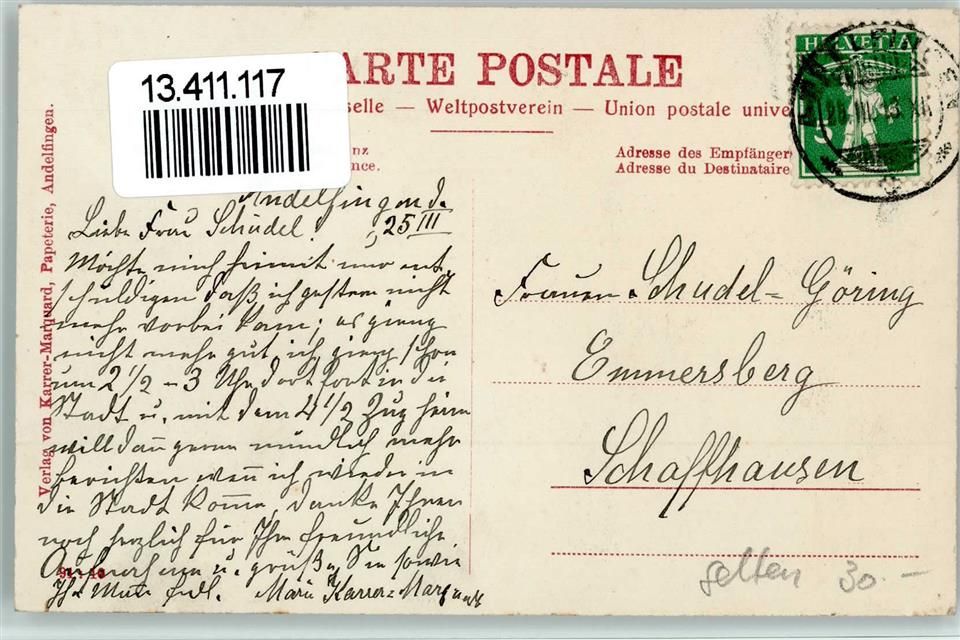 13.411.117
ARTE POSTALE
selle — Weltpostverein — Union postale unive
nz
nce.
Adresse des Empfänger
Adresse du Destinataire
HELVETIA
Verlag von Karrer-Marquard, Papeterie, Andelfingen.
Andelfingen d.
25 III
Liebe Frau Schudel!
Möchte mich hiemit nur ent
schuldigen daß ich gestern nicht
mehr vorbei kam; es gieng
nicht mehr gut, ich gieng schon
um 2 1/2 – 3 Uhr dort fort in die
Stadt u. mit dem 4 1/2 Zug heim
will dann gerne mündlich mehr
berichten wenn ich wieder in
die Stadt komme, danke Ihnen
noch herzlich für Ihre freundliche
Aufnahme u. grüße Sie sowie
Ihre Mutter frdl. Marie Karrer-Marquard
Frauen Schudel-Göring
Emmersberg
Schaffhausen
selten 30.-